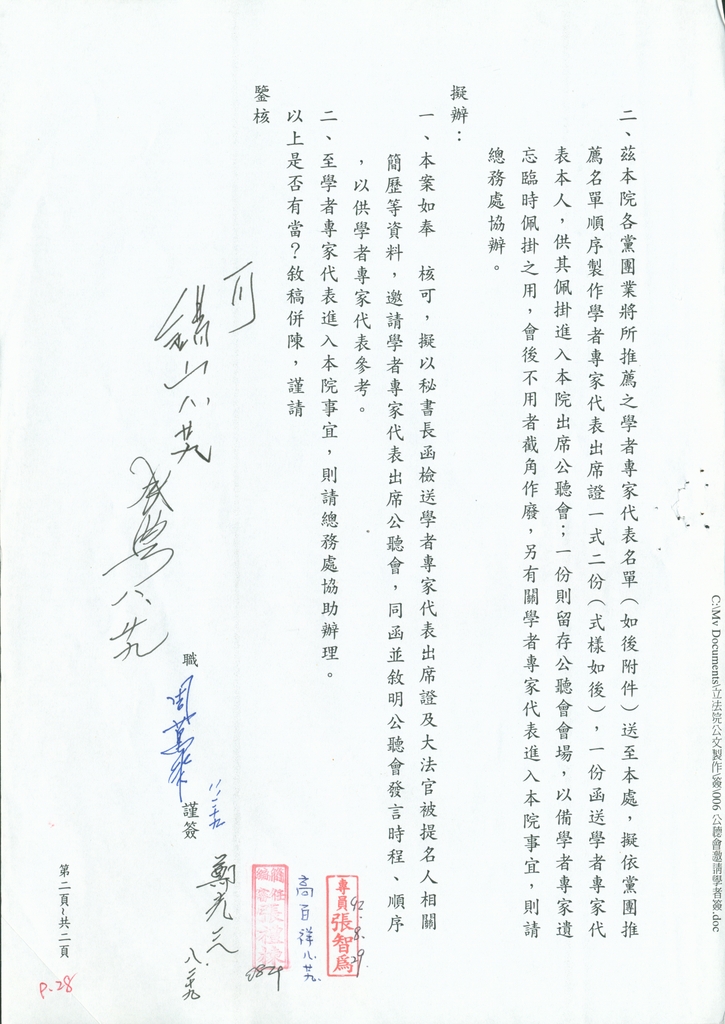 二、茲本院各黨團業將所推薦之學者專家代表名單（如後附件）送至本處，擬依黨團推
薦名單順序製作學者專家代表出席證一式二份（式樣如後），一份函送學者專家代
表本人，供其佩掛進入本院出席公聽會；一份則留存公聽會會場，以備學者專家遺
忘臨時佩掛之用，會後不用者截角作廢，另有關學者專家代表進入本院事宜，則請
總務處協辦。
擬辦：
一、本案如奉　核可，擬以秘書長函檢送學者專家代表出席證及大法官被提名人相關
簡歷等資料，邀請學者專家代表出席公聽會，同函並敘明公聽會發言時程、順序
，以供學者專家代表參考。
二、至學者專家代表進入本院事宜，則請總務處協助辦理。
以上是否有當？敘稿併陳，謹請
鑒核
可
職
謹簽
專員張智為
92.8.29.
高百祥 八.廿九.
0829
第二頁~共二頁
P.28
C:\My Documents\立法院公文製作\簽\006 公聽會邀請學者簽.doc